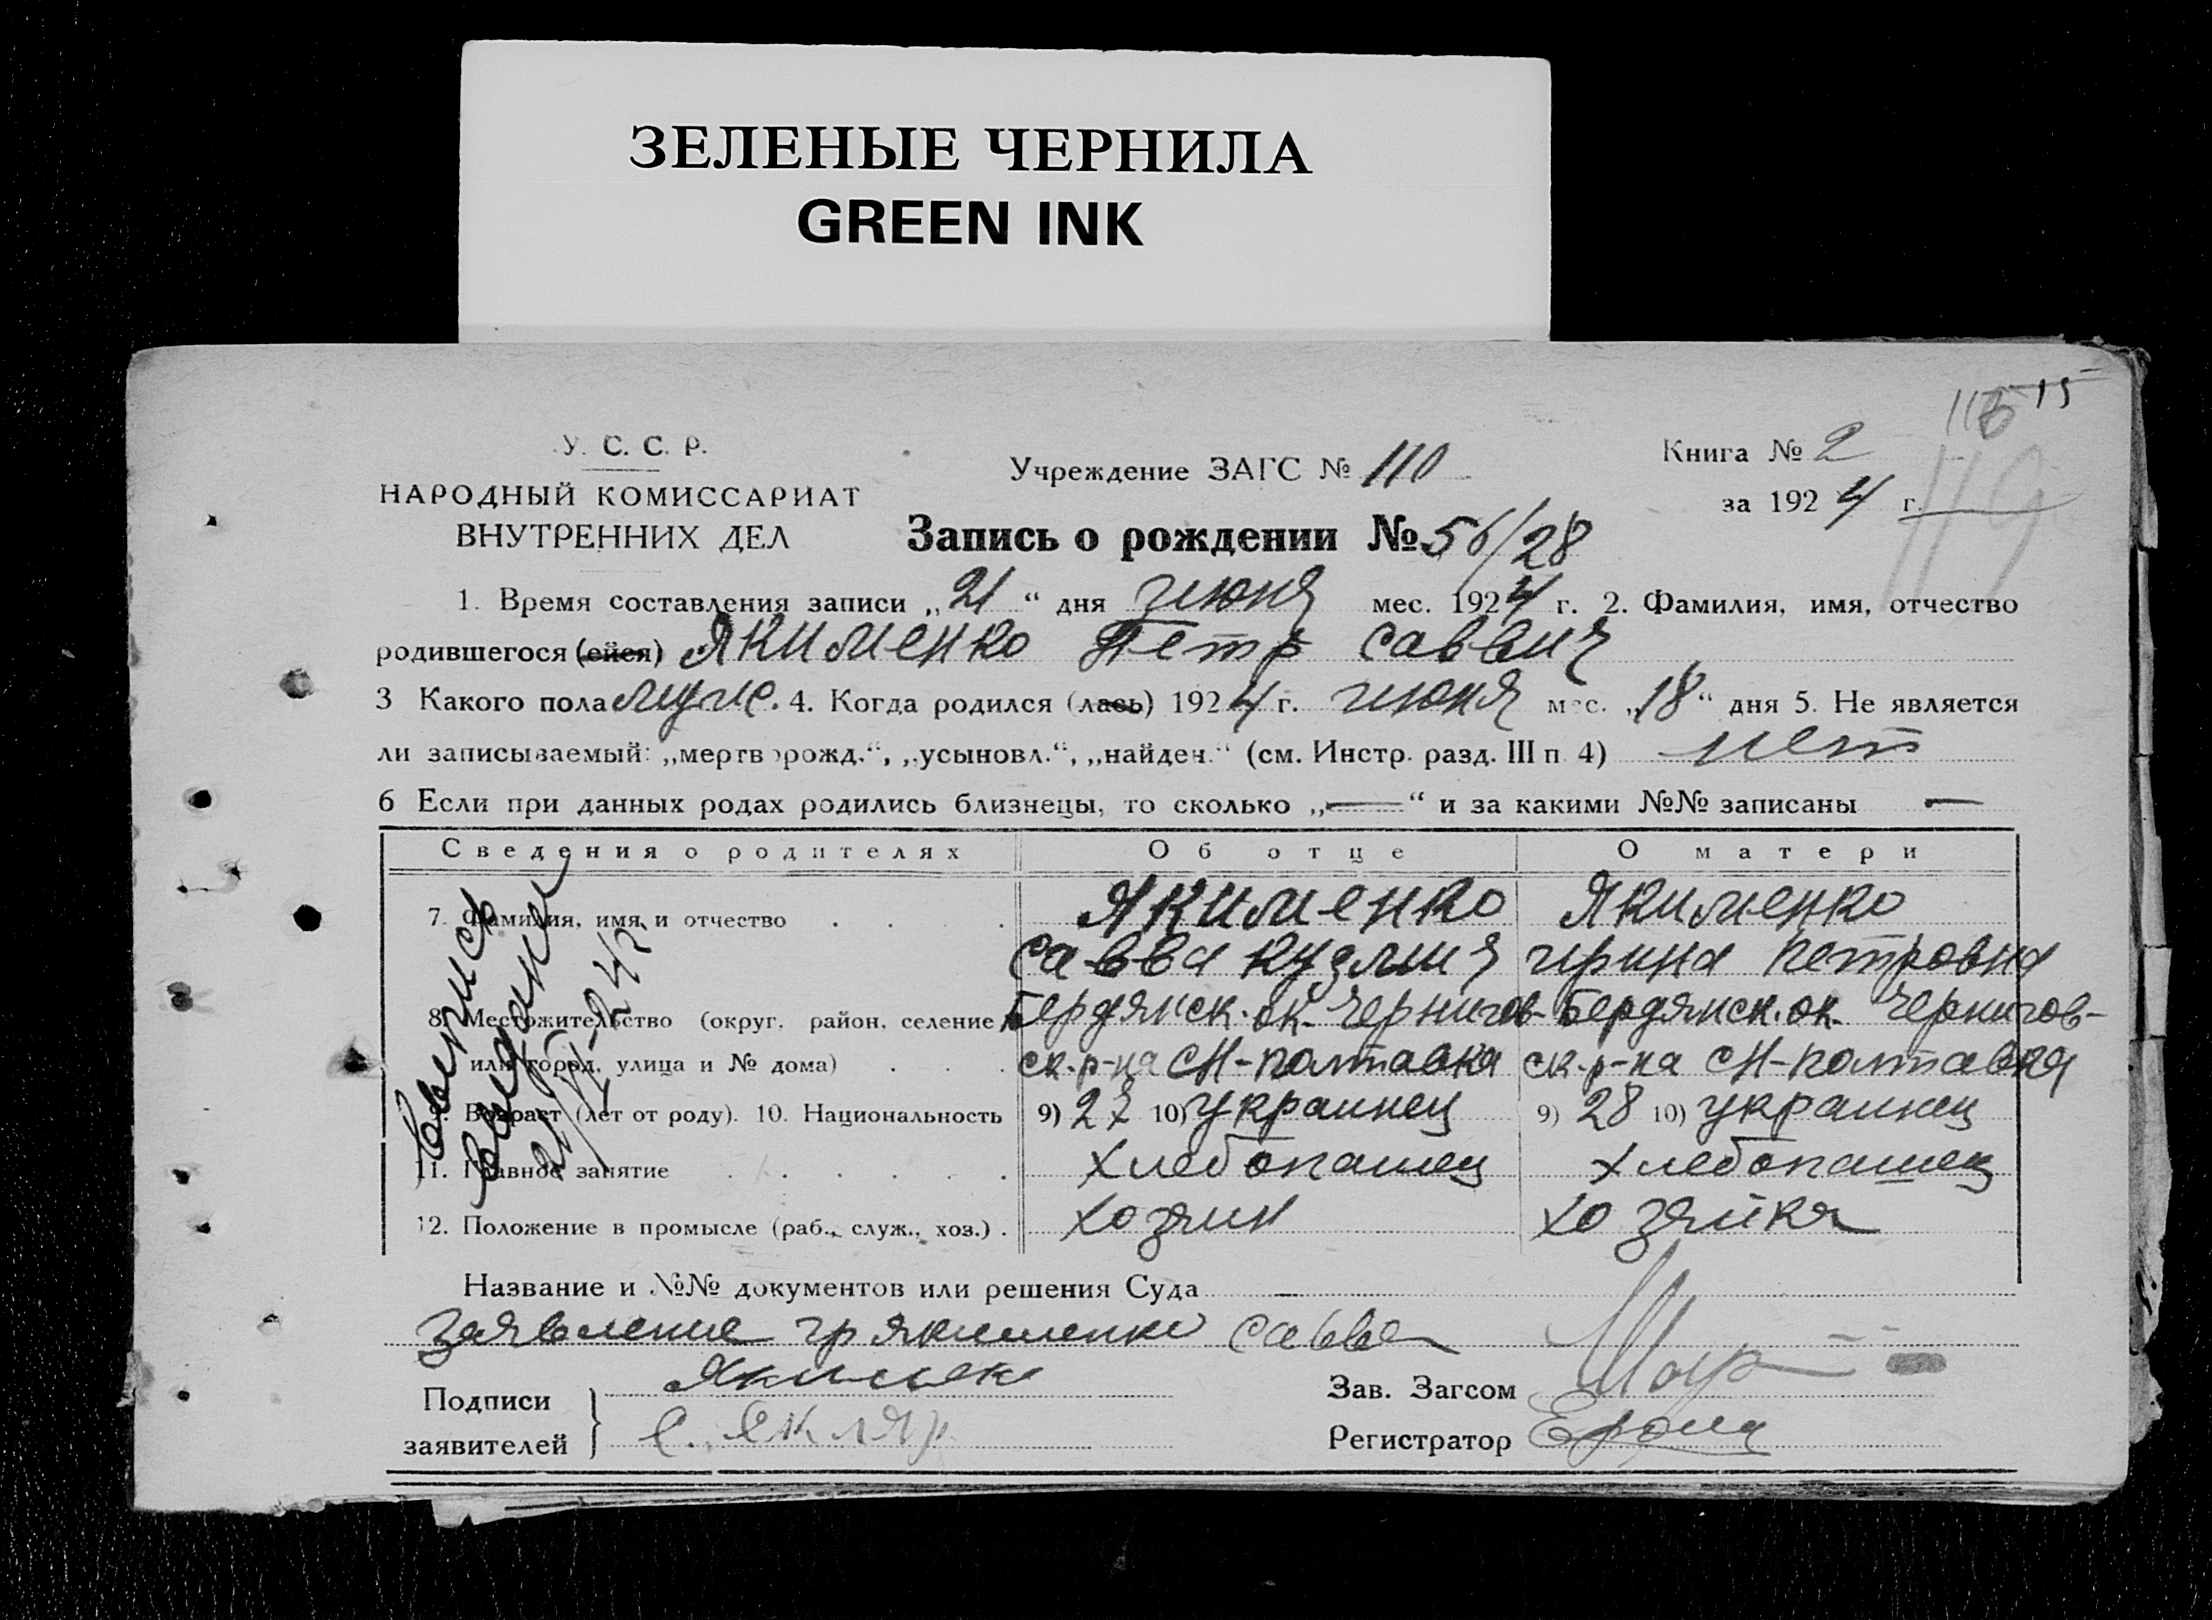 ЗЕЛЕНЫЕ ЧЕРНИЛА
GREEN INK
15
У. С. С. Р.
НАРОДНЫЙ КОМИССАРИАТ
ВНУТРЕННИХ ДЕЛ
Учреждение ЗАГС № 110
Книга № 2
за 1924 г.
119
Запись о рождении № 56/28
1. Время составления записи „21“ дня июня мес. 1924 г. 2. Фамилия, имя, отчество
родившегося (ейся) Якименко Петр Саввич
3 Какого пола муже. 4. Когда родился (лась) 1924 г. июня мес. „18“ дня 5. Не является
ли записываемый: „мертворожд.“, „усыновл.“, „найден.“ (см. Инстр. разд. III п. 4) нет
6 Если при данных родах родились близнецы, то сколько „—“ и за какими №№ записаны —
Сведения о родителях Об отце О матери
7. Фамилия, имя и отчество Якименко Якименко
Савва Кузмич Ирина Петровна
8. Местожительство (округ, район, селение Бердянск. ок. Чернигов- Бердянск. ок. Чернигов-
или город, улица и № дома) ск. р-на СН-Полтавка ск. р-на СН-Полтавка
Возраст (лет от роду). 10. Национальность 9) 27 10) украинец 9) 28 10) украинец
11. Главное занятие хлебопашец хлебопашец
12. Положение в промысле (раб., служ., хоз.) хозяин хозяйка
выпись
выдана
21/VI-24 г.
Название и №№ документов или решения Суда —
Заявление гр Якименко Савве
Подписи
заявителей
Якименко
С. Скляр
Зав. Загсом
Регистратор